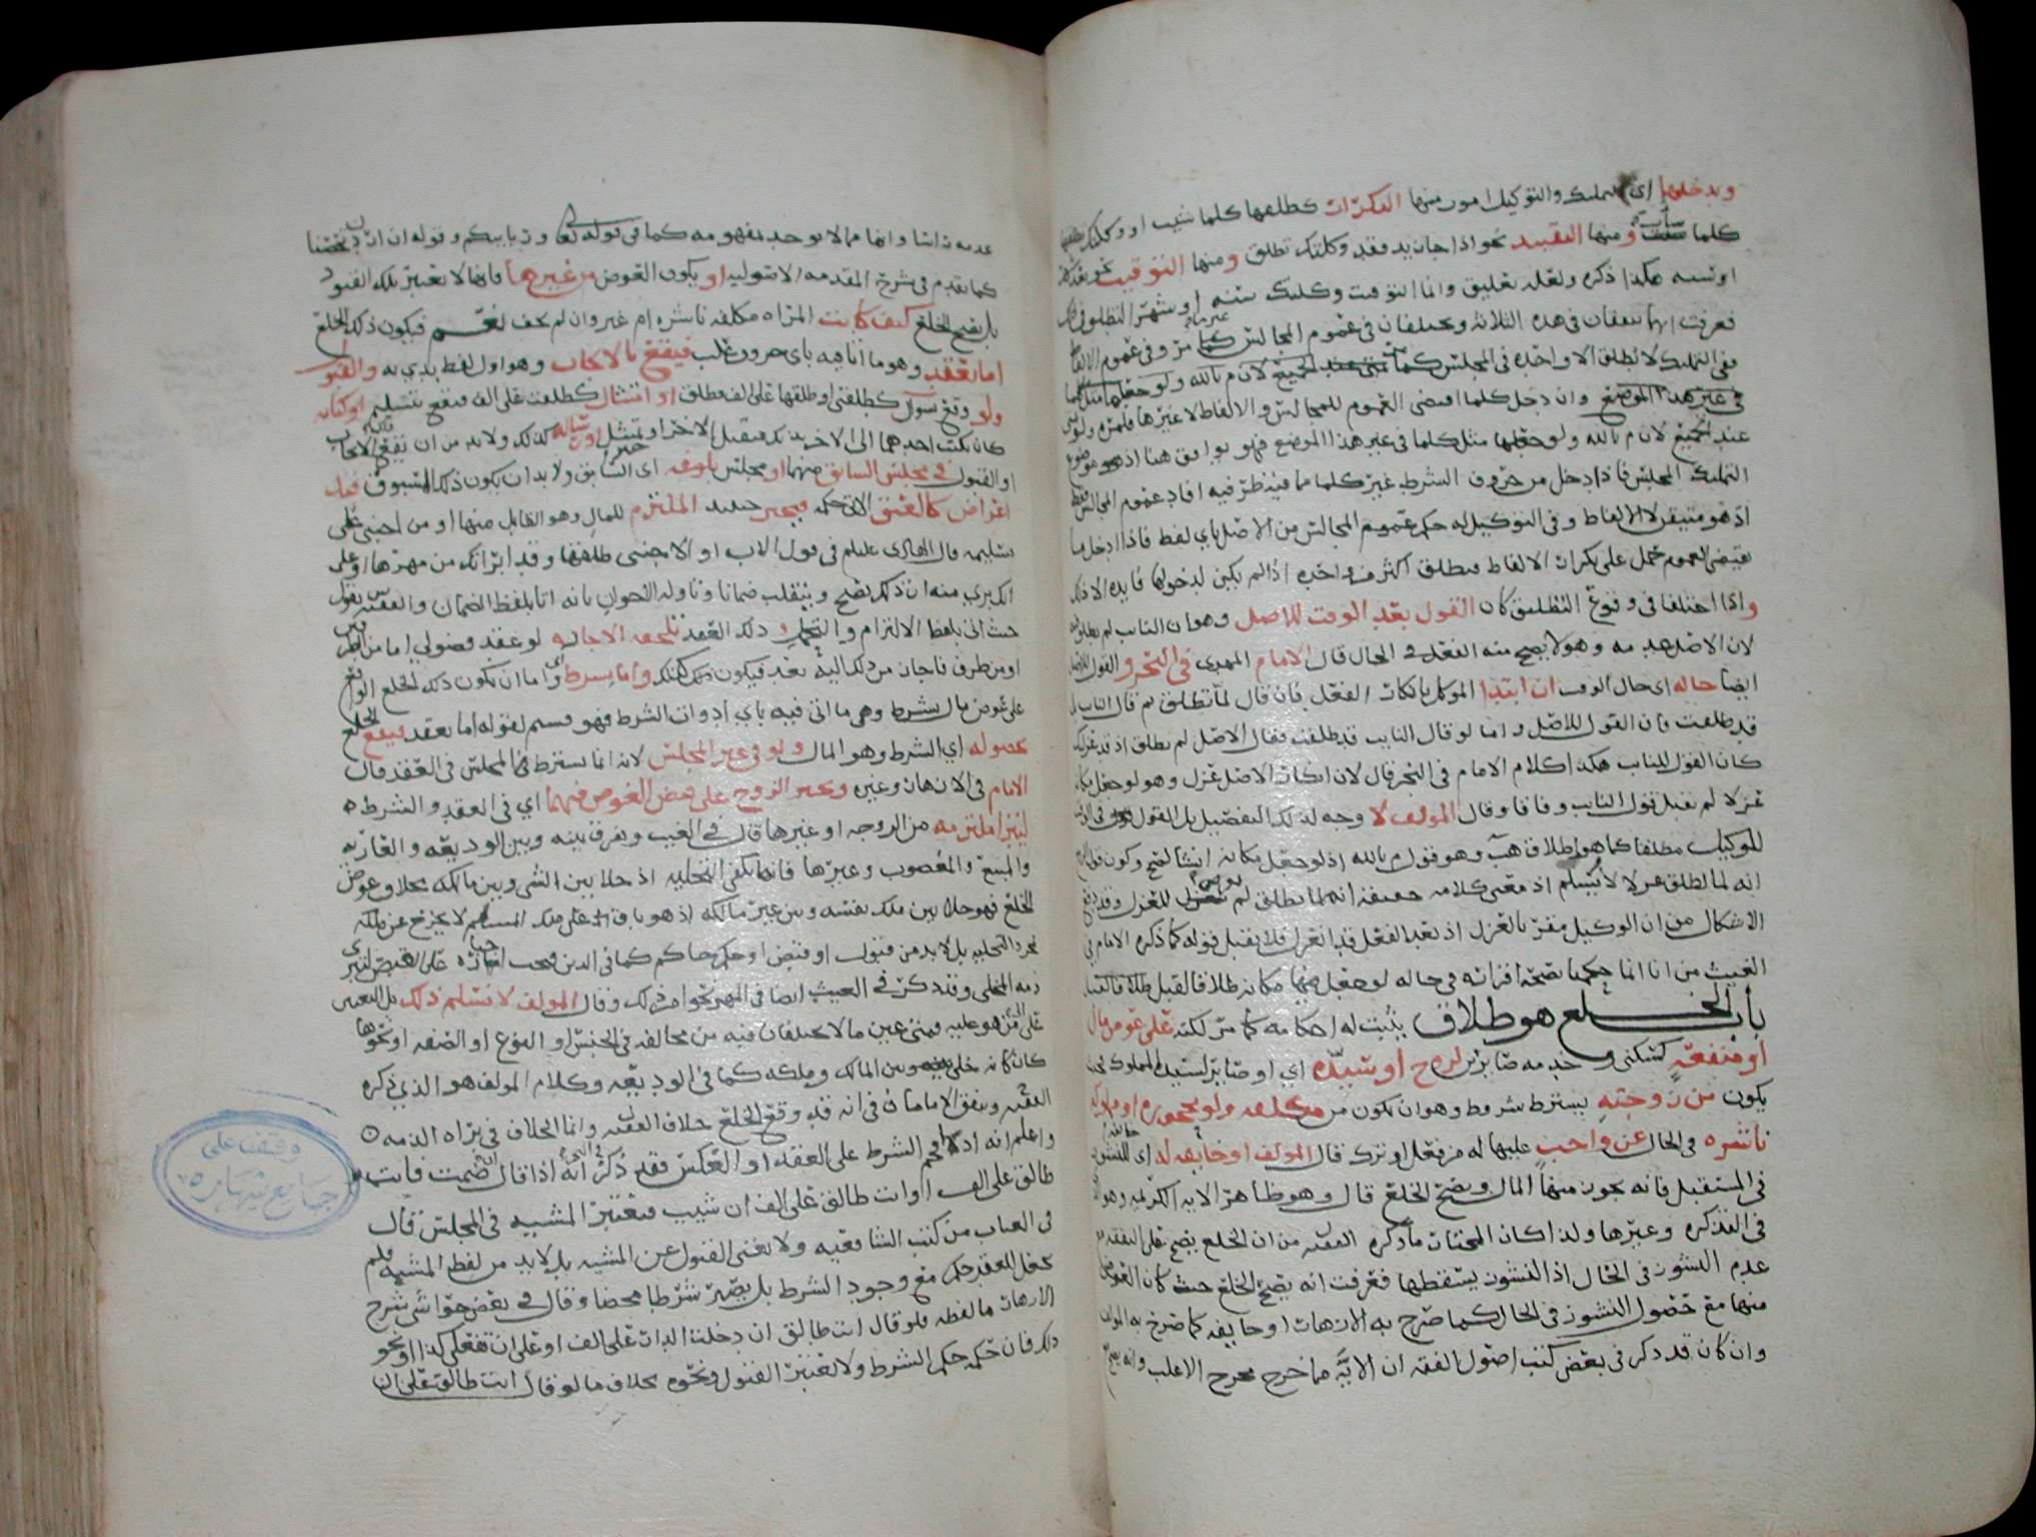 ويدخلهما اي التمليك والتوكيل امور منها التكرار كطلقها كلما شيت او وكلتك بطلاقها
كلما شيت ومنها التقييد نحو اذا جا زيد فقد وكلتك تطلق ومنها التوقيت نحو
او سنة هكذا ذكره ولعله تعليق واما التوقيت وكلتك سنة او شهرا لتطلق
فعرفت انهما يتفقان في هذه الثلاثة ويختلفان في عموم المجالس كما مر وفي عموم الالفاظ
ففي التمليك لا تطلق الا واحده في المجلس كما
في غير هذا الموضع وان دخل كلما اقتضى العموم للمجالس والالفاظ لا غيرها
عند الجميع لان م بالله ولو جعلها مثل كلما في غير هذا الموضع فهو يوافق هنا اذ هو
التمليك المجلس فاذا دخل من حروف الشرط غير كلما مما فيه ظرفيه افاد عموم المجالس فقط
اذ هو متيقن لا الالفاظ وفي التوكيل له حكم عموم المجالس من الاصل باي لفظ فاذا ادخل ما
يقتضي العموم حمل على تكرار الالفاظ فيطلق اكثر من واحده اذ لم يكن لدخولها فايده الا ذلك
واذا اختلفا في وقوع التطليق كان القول بعد الوقت للاصل وهو ان النايب لم يطلق
لان الاصل عدمه وهو لا يصح منه الفعل في الحال قال الامام المهدي في البحر والقول للاصل
ايضا حاله اى حال الوقت ان ابتدا الموكل بانكار الفعل فان قال لم تطلق ثم قال النايب
قد طلقت فان القول للاصل واما لو قال النايب قد طلقت فقال الاصل لم تطلق
كان القول للنايب هكذا كلام الامام في البحر قال لان انكار الاصل عزل وهو لو جعل
عزلا لم يقبل قول النايب وفاقا وقال المولف لا وجه لذلك التفصيل بل القول
للوكيل مطلقا كما هو اطلاق هب وهو قول م بالله اذ لو جعل مكانه انشا لصح وكون قوله
انه لما تطلق عزلا لا نسلم اذ معنى كلامه حقيقة انه لما تطلق لم للعزل
الاشكال من ان الوكيل مقر بالعزل اذ بعد الفعل قد انعزل فلا يقبل قوله كما ذكره الامام في
الغيث من انا انما حكمنا بصحة اقراره في حاله لو جعل فيها مكانه طلاقا لقبل
باب الخلع هو طلاق يثبت له احكامه كما مر لكنه على عوض مال
او منفعة كسكنى وخدمه صاير لزوج او سيده اي او صاير لسيد المملوك
يكون من زوجته بشترط شروط وهو ان يكون من مكلفه ولو محجوره او مملوكه
ناشزه في الحال عن واجب عليها له من فعل او ترك قال المولف او خايفه له اي للنشوز
في المستقبل فانه يجوز منها المال ويصح الخلع قال وهو ظاهر الايه الكريمه
في التذكره وغيرها ولذا كان المختار ما ذكره الفقيه من ان الخلع يصح
عدم النشوز في الحال اذ النشوز يسقطها فعرفت انه يصح الخلع حيث كان العوض
منها مع حصول النشوز في الحال كما صرح به الازهار او خايفه كما صرح به
وان كان قد ذكر في بعض كتب اصول الفقه ان الايه مما خرج مخرج الاغلب
عدمه راسا وانها مما لا يوخذ مفهومه كما في قوله تعالى وربايبكم وقوله ان اردن تحصنا
كما تقدم في شرح المقدمه الاصوليه او يكون العوض من غيرها فانها لا تعتبر تلك القيود
بل يصح الخلع كيف كانت المراه مكلفه ناشزه ام غير وان لم تخف فيكون ذلك الخلع
اما بعقد وهو ما اتا فيه باي حروف غلب فيقع بالايجاب وهو اول لفظ بدي به والقبول
ولو وقع سوال كطلقني او طلقها على الف فطلق او امتثال كطلقت على الف فيقع بتسليم او كتابه
كان يكتب احدهما الى الاخر فيقبل الاخر او يمتثل او رساله كذلك ولا بد من ان يقع الايجاب
او القبول في مجلس السابق منهما او مجلس بلوغه اى السابق ولا بد ان يكون ذلك المسبوق قبل
اعراض كالعتق الاتي حكمه فيجبر حينيذ الملتزم للمال وهو القابل منها او من اجنبي على
تسليمه قال الهادي عليلم في قول الاب او الاجنبي طلقها وقد ابراتك من مهرها او على
ان تبري منه ان ذلك يصح وينقلب ضمانا وتاوله الاخوان بانه اتا بلفظ الضمان والفقيه س بقوله
حيث اتى بلفظ الالتزام والتحمل و ذلك العقد تلحقه الاجازه لو عقد فضولي اما من الطرفين
او من طرف فاجاز من ذلك اليه بعد فيكون ذلك كذلك واما بشرط اي واما ان يكون ذلك الخلع الواقع
على عوض مال بشرط وهي ما اتى فيه باي ادوات الشرط فهو قسيم لقوله اما بعقد فيقع الخلع
بحصوله اي الشرط وهو المال ولو في غير المجلس لانه انما يشترط المجلس في العقد قال
الامام في الازهار وغيره ويجبر الزوج على قبض العوض فيهما اي في العقد والشرط
ليبرا ملتزمه من الزوجه او غيرها قال في الغيث ويفرق بينه وبين الوديعه والعاريه
والمبيع والمغصوب وغيرها فانه يكفي التخليه اذ خلا بين الشي وبين مالكه بخلاف عوض
الخلع فهو خلا بين ملك نفسه وبين غير مالكه اذ هو باق على ملك المسلم لا يخرج عن ملكه
بمجرد التخليه بل لا بد من قبول او قبض او حكم حاكم كما في الدين فيجب اجباره على القبض لتبري
ذمه المخلي وقد ذكر في الغيث ايضا في المهر نحو من ذلك وقال المولف لا نسلم ذلك بل التعيين
على من هو عليه فمتى عين ما لا يختلفان فيه من مخالفه في الجنس او النوع او الصفه او نحوها
كان كانه خلى بينه وبين المالك وملكه كما في الوديعه وكلام المولف هو الذي ذكره
الفقيه ويتفق الامامان في انه قد وقع الخلع خلاف الفقيه وانما الخلاف في براه الذمه
واعلم انه اذا الشرط على العقد او العكس فقد ذكر انه اذا قال ان ضمنت فانت
طالق على الف او انت طالق على الف ان شيت فتعتبر المشيه في المجلس قال
في العباب من كتب الشافعيه ولا يغني القبول عن المشيه بل لا بد من لفظ المشيه فلم
يجعل للعقد حكم مع وجود الشرط بل يصير شرطا محضا وقال في بعض حواشي شرح
الازهار ما لفظه فلو قال انت طالق ان دخلت الدار على الف او على ان تفعلي كذا او نحو
ذلك فان حكمه حكم الشرط ولا يعتبر القبول ونحوه بخلاف ما لو قال انت طالق على الف
وقف على
جامع شهاره